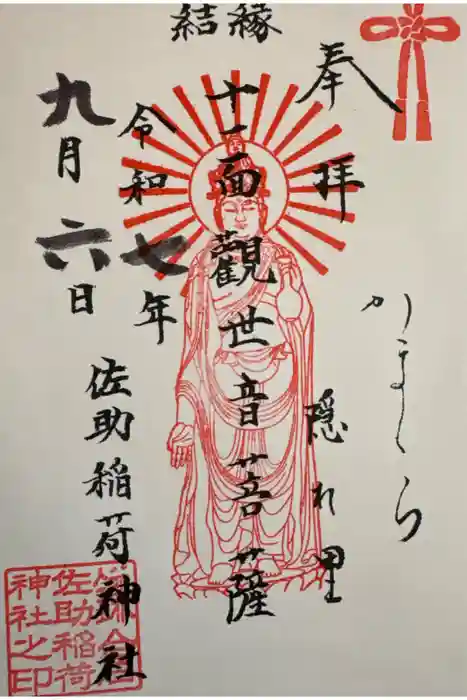 縁結
奉拝
かまくら
隠れ里
十一面觀世音菩薩
令和七年
九月六日
佐助稲荷神社
佐助稲荷
神社之印